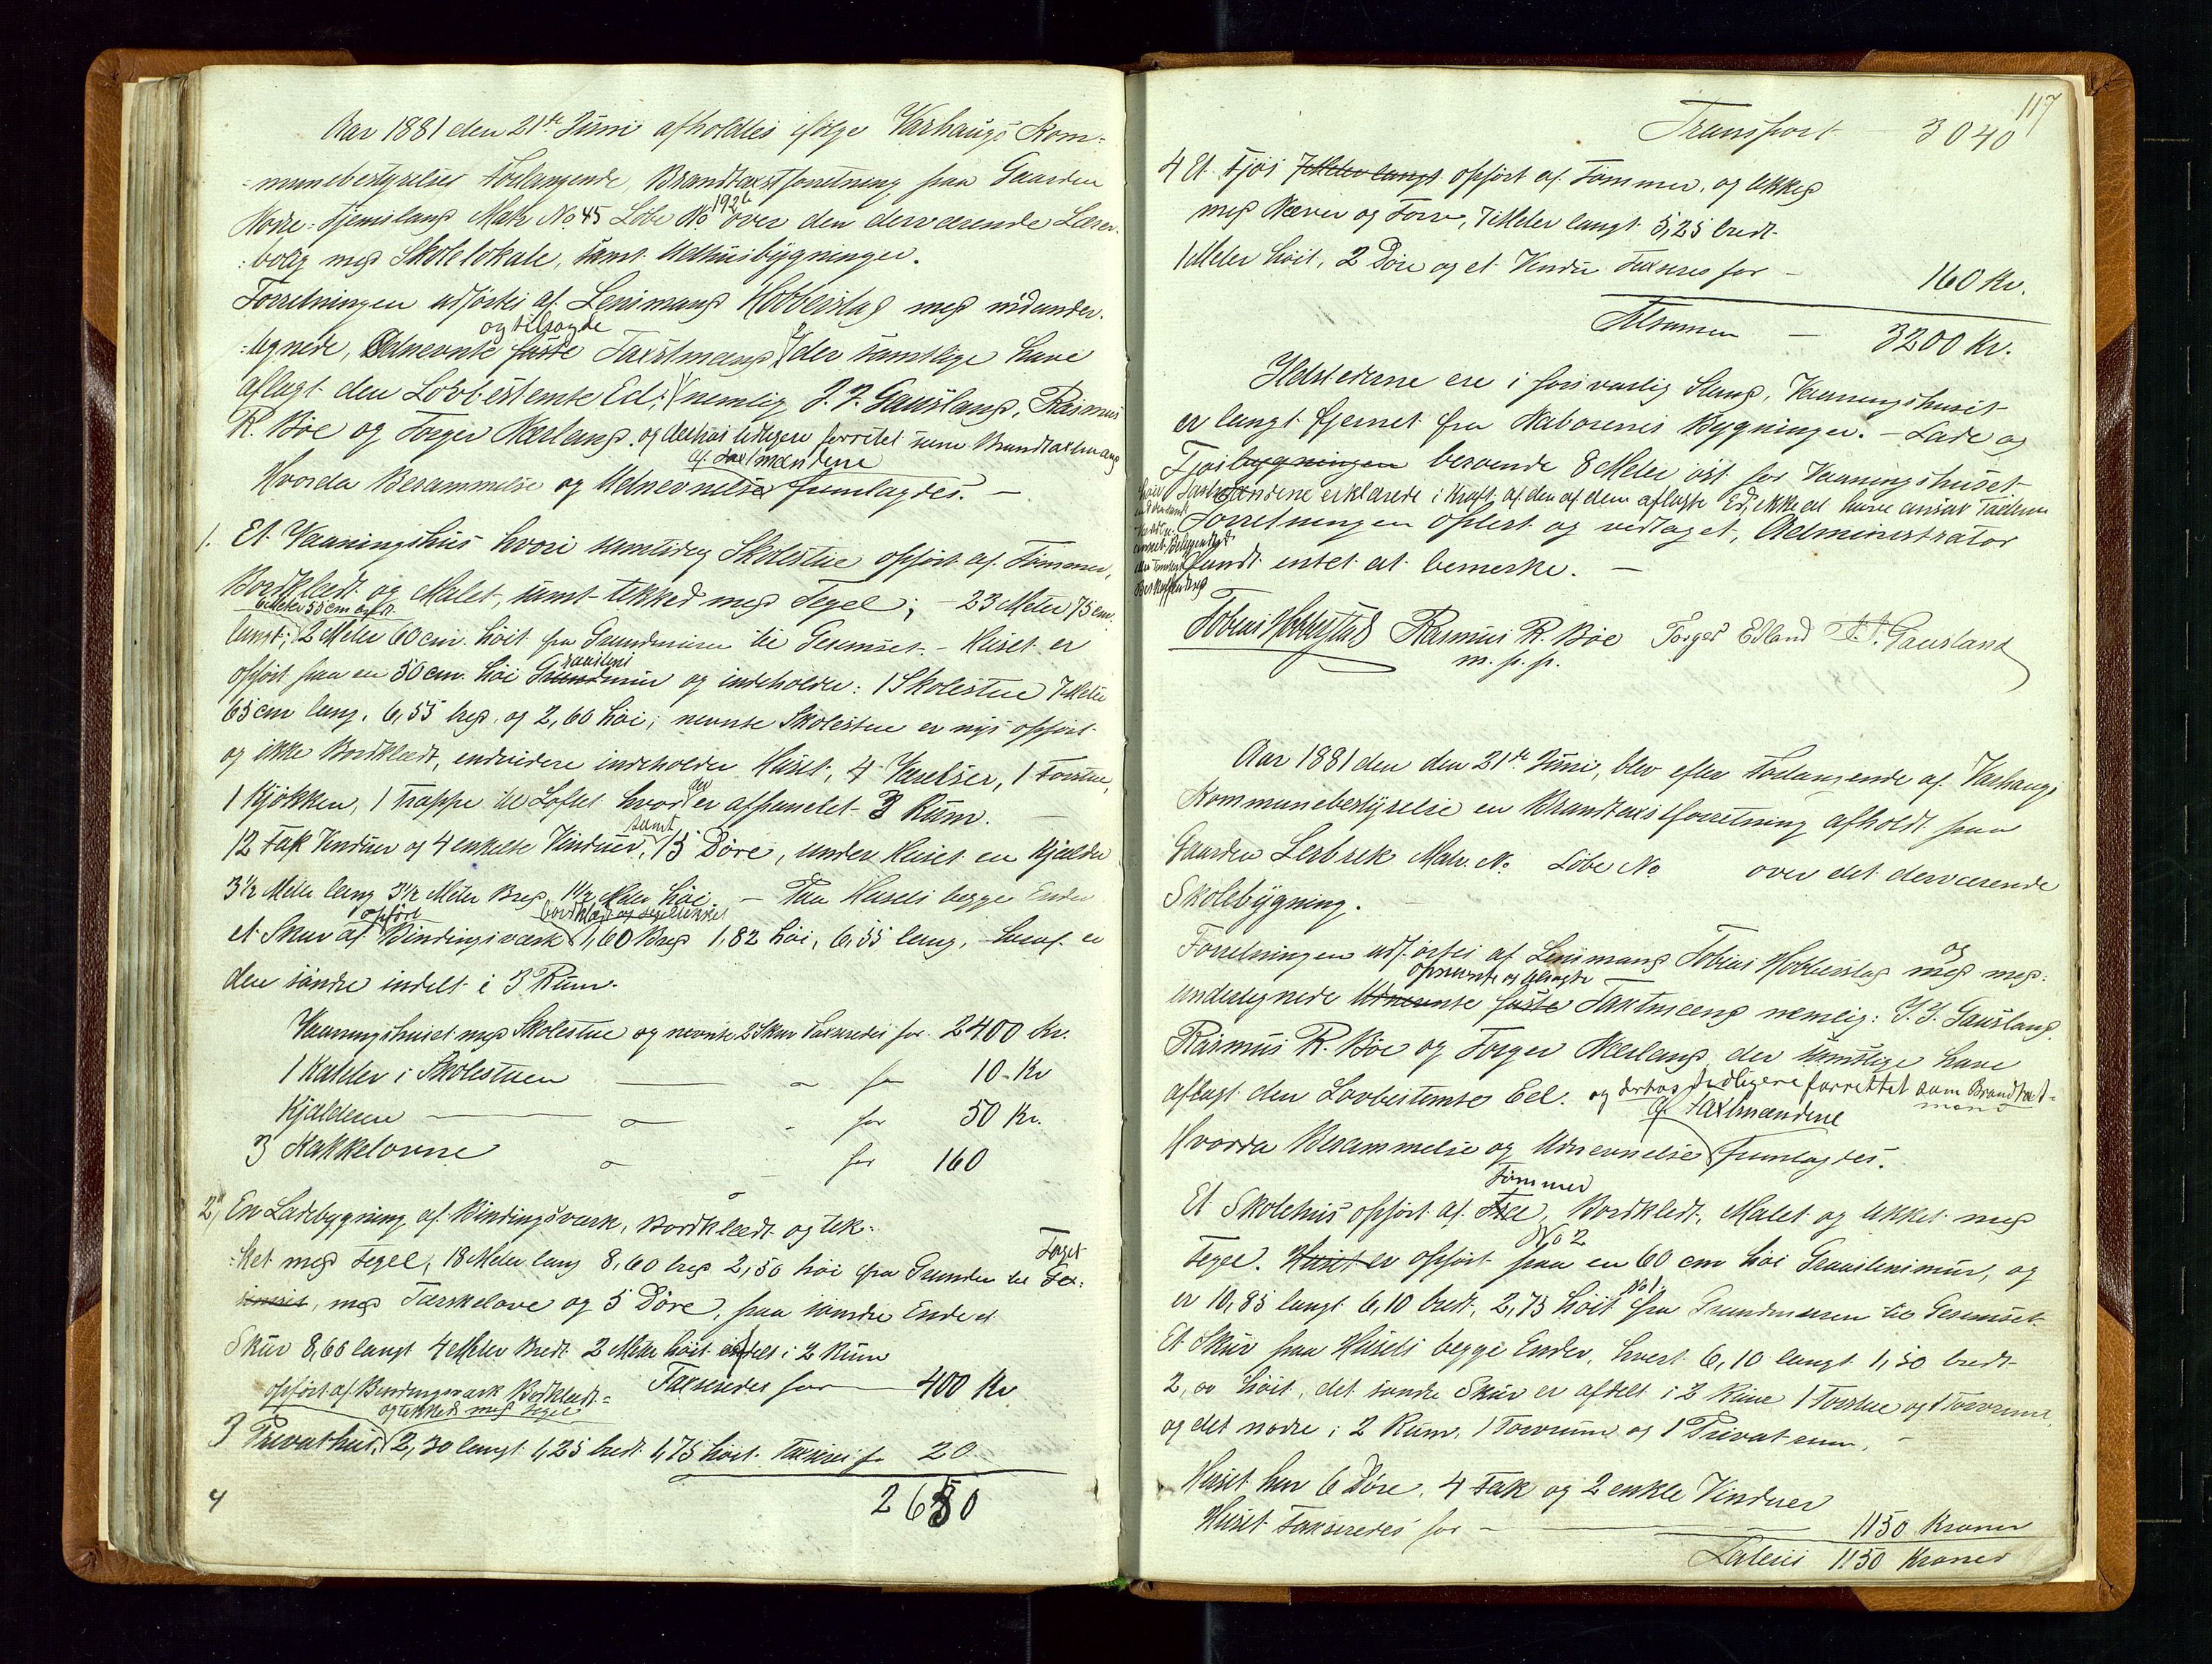 Aar 1881 den 21de Juni afholdtes ifølge Varhaugs Kom=
=munebestyrelses Forlangende, Brandtaxtforretning paa Gaarden
Nodre: Tjemsland Matr No 45 Løbe No 192b over den derværende Lærer=
:bolig med Skolelokale, samt Udhusbygninger.
Forretningen udførtes af Lensmand Hobberstad med medunder:
og tilsagde
:tegnede, Udnevnte faste Taxtmænd, der samtlige have
aflagt den Lovbestemte Ed; nemlig J. J. Gausland, Rasmus
R. Bøe og Torger Nærland. og derhos tidligere forrettet som Brandtaxtmænd
af Taxtmændene
Hvorda Berammelse og Udnevnelse fremlagdes. —
1. Et Vaaningshus hvori samtidig Skolestue opført af Tømmer,
Bordklædt og Malet, samt tekked med Tegel; – 23 Meter 75 cm.
6 Meter 55 cm bredt
langt; 2 Meter 60 cm. høit fra Grundmuren til Gesemset. – Huset er
Graasteins
opført paa en 50 cm. høi Grundmur og indeholder: 1 Skolestue 7 Meter
65 cm lang, 6,55 bred, og 2,60 høi; nevnte Skolestue er nys opført
og ikke Bordklædt, endvidere indeholder Huset, 4 Værelser, 1 Forstue,
1 Kjøkken, 1 Trappe til Loftet hvor der er afpanelet 3 Rum. —
samt
12 Fak Vinduer og 4 enkelte Vinduer, 15 Døre, under Huset en Kjælder
3 1/2 Meter lang 3 1/2 Meter Bred, 1 1/2 Meter høi. – Paa Husets begge Ender
opført bordklædt og tegeltekket
et Skur af Bindingsværk 1,60 Bred 1,82 høi, 6,55 lang, hvoraf er
den søndre indelt i 3 Rum.
Vaaningshuset med Skolestue og nevnte 2 Skur Taxseredes for 2400 Kr.
1 Kateder i Skolestuen — " for 10 – Kr
Kjælderen — " for 50 Kr.
3 Kakkelovne " for 160
2, En Ladebygning af Bindingsværk, Bordklædt og tek:
:ket med Tegel, 18 Meter lang 8,60 bred 2,50 høi fra Grunden til Ge:
Taget
simset, med Tærskelove og 5 Døre, paa søndre Ende et
Skur 8,60 langt 4 Meter Bredt 2 Meter høit afdelt i 2 Rum
Taxseredes for — 400 Kr.
opført af Bindingsværk Bordklædt=
og tekked med Tegel
3 Privathus, 2,30 langt 1,25 bredt 1,75 høit Taxseres for 20
2650
4
117
Transport 3040
4 Et Fjøs 7 Meter langt opført af Tømmer, og tekked
med Næver og Torv, 7 Meter langt 5,25 bredt
1 Meter høit, 2 Døre og et Vindu Taxseres for – 160 Kr.
Tilsammen — 3200 Kr.
Ildstederne ere i forsvarlig Stand, Vaaningshuset
er langt fjernet fra Naboernes Bygninger. – Lade og
Fjøsbygningen beroende 8 Meter øst for Vaaningshuset
Taxtmændene erklærede i Kraft af den af dem aflagte Ed, ikke at have ansat Taxten
Forretningen oplest og vedtaget, Administrator
fandt intet at bemerke. —
Beskaffenhed
Tobias Hobberstad Rasmus R. Bøe Torger Edland J. J. Gausland
m. p. p.
Aar 1881 den den 21de Juni, blev efter Forlangende af Varhaugs
Kommunebestyrelse en Brandtaxtforretning afholdt paa
Gaarden Lerbrek Matr. No Løbe No over det derværende
Skolebygning.
Forretningen udførtes af Lensmand Tobias Hobberstad og med med:
opnevnte og tilsagte
undertegnede Udnevnte faste Taxtmænd nemlig: J. J. Gausland,
Rasmus R. Bøe og Torger Nærland, der samtlige have
aflagt den Lovbestemte Eed. og derhos tidligere forrettet som Brandtaxt=
mænd
af Taxtmændene
Hvorda Berammelse og Udnevnelse fremlagdes.
Tømmer
Et Skolehus opført af Træ, Bordklædt, Malet og tekket med
No 2
Tegel. Huset er opført paa en 60 cm høi Graastensmur, og
No 1
er 10,85 langt 6,10 bredt, 2,75 høit fra Grundmuren til Gesemset.
Et Skur paa Husets begge Ender, hvert 6,10 langt 1,50 bredt
2,00 høit, det søndre Skur er afdelt i 2 Rum 1 Forstue og 1 Torvrum,
og det nordre i 2 Rum, 1 Torvrum og 1 Privatrum. –
Huset har 6 Døre, 4 Fak og 2 enkle Vinduer
Huset Taxseredes for – — 1150 Kroner
Lateris 1150 Kroner